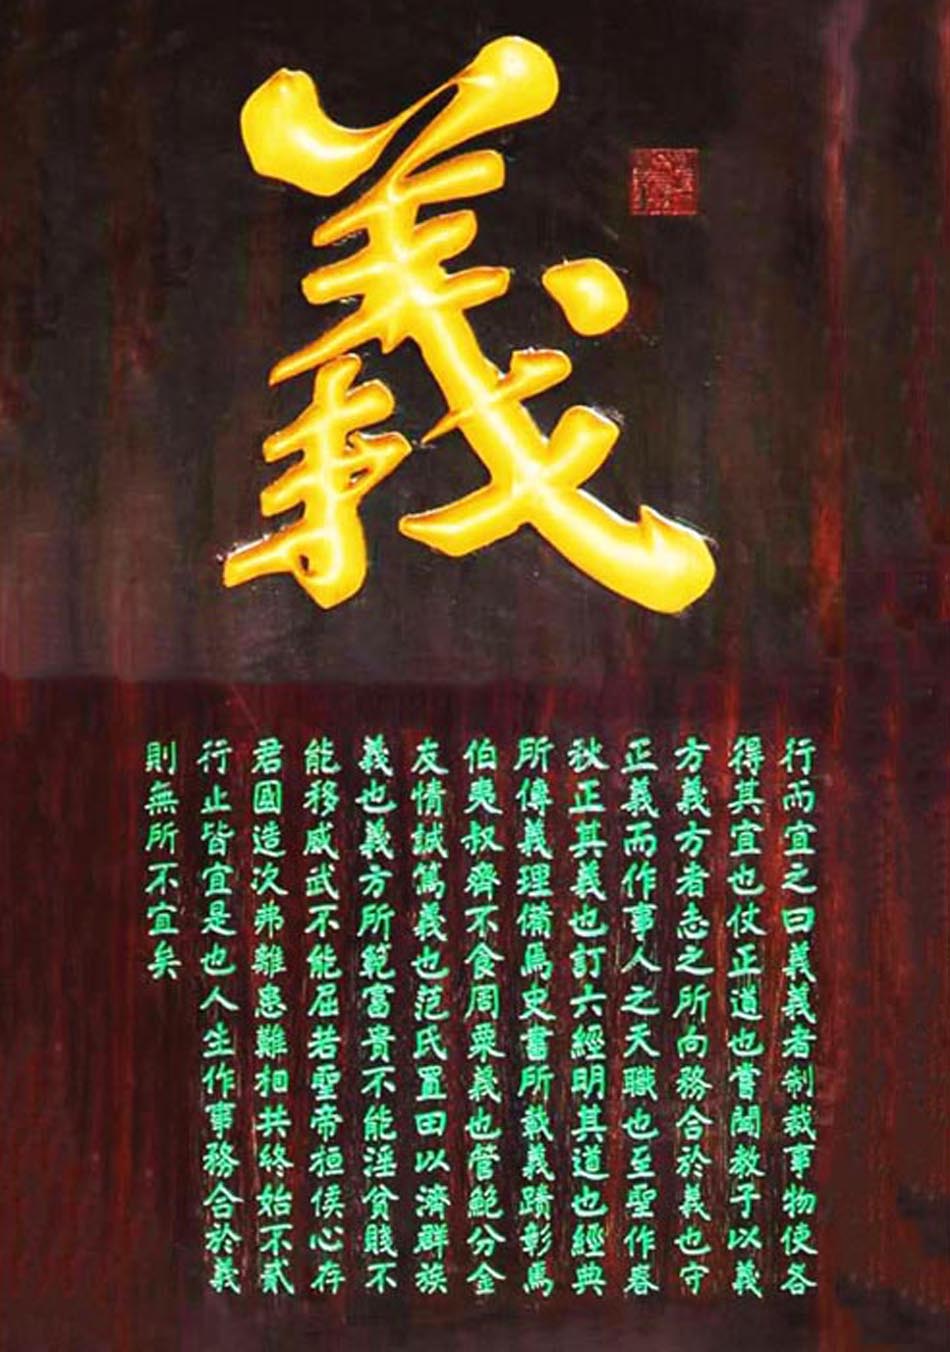 義
行而宜之曰義義者制裁事物使各
得其宜也仗正道也嘗聞教子以義
方義方者志之所向務合於義也守
正義而作事人之天職也至聖作春
秋正其義也訂六經明其道也經典
所傳義理備焉史書所載義蹟彰焉
伯夷叔齊不食周粟義也管鮑分金
友情誠篤義也范氏置田以濟群族
義也義方所範富貴不能淫貧賤不
能移威武不能屈若聖帝桓侯心存
君國造次弗離患難相共終始不貳
行止皆宜是也人生作事務合於義
則無所不宜矣